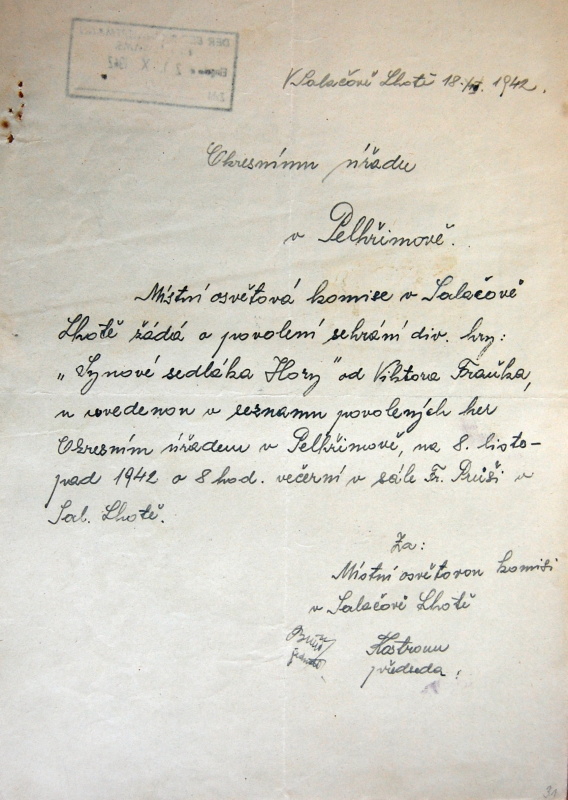 V Salačově Lhotě 18. 1942.
Okresnímu úřadu
v Pelhřimově.
Místní osvětová komise v Salačově
Lhotě žádá o povolení sehrání div. hry:
„Synové sedláka Hory" od Viktora Fraňka,
uvedenou v seznamu povolených her
Okresním úřadem v Pelhřimově, na 8. listo-
pad 1942 o 8 hod. večerní v sále Fr. v
Sal. Lhotě.
Za:
Místní osvětovou komisi
v Salačově Lhotě
předseda.
31